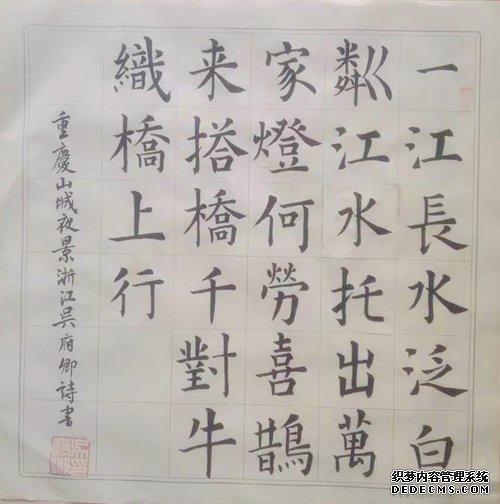 一江長水泛白
粼江水托出萬
家燈何勞喜鵲
来搭橋千對牛
織橋上行
重慶山城夜景浙江吳府卿詩書
织梦内容管理系统
DEDECMS.COM